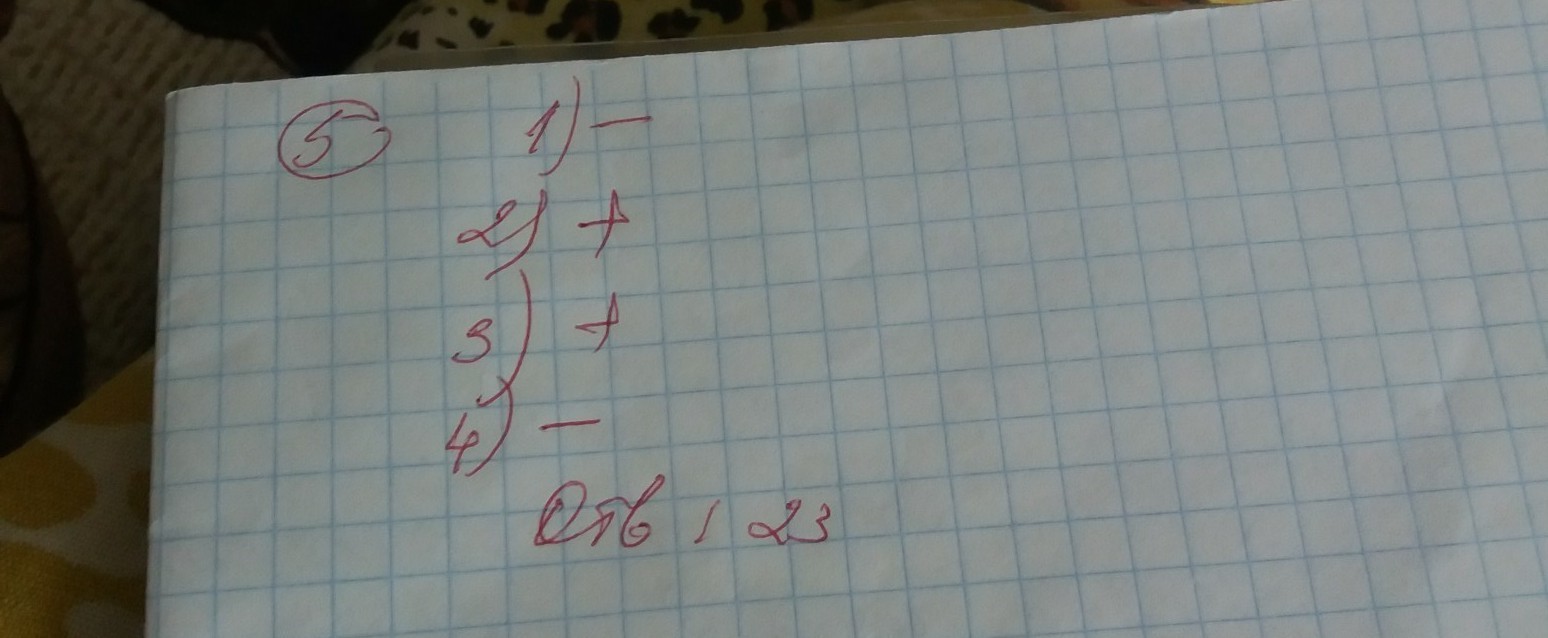 5 1) —
2) +
3) +
4) —
Отв : 23